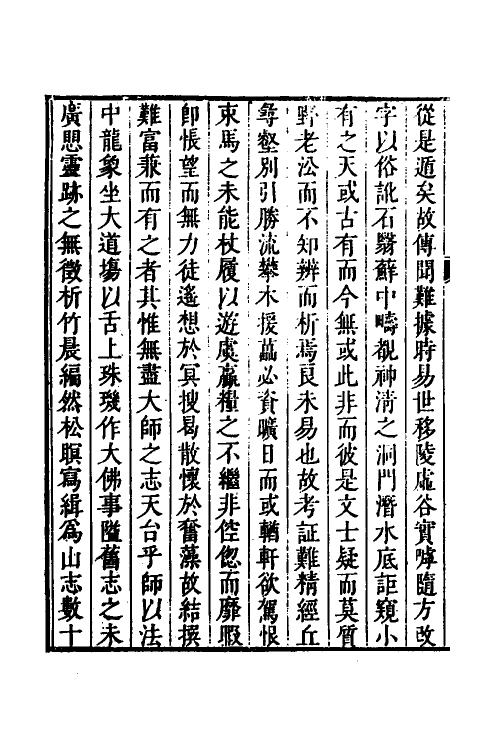 從是遁矣故傳聞難據時易世移陵虛谷實嘑隨方改
字以俗訛石翳蘚中疇覩神淸之洞門潛水底詎窺小
有之天或古有而今無或此非而彼是文士疑而莫質
野老訟而不知辨而析焉良未易也故考証難精經丘
尋壑別引勝流攀木援藟必資曠日而或輶軒欲駕恨
束馬之未能杖履以遊虞贏糧之不繼非倥偬而靡暇
卽悵望而無力徒遙想於冥搜曷散懷於奮藻故結撰
難富兼而有之者其惟無盡大師之志天台乎師以法
中龍象坐大道塲以舌上珠璣作大佛事隘舊志之未
廣愳靈跡之無徵析竹晨編然松暝寫緝爲山志數十